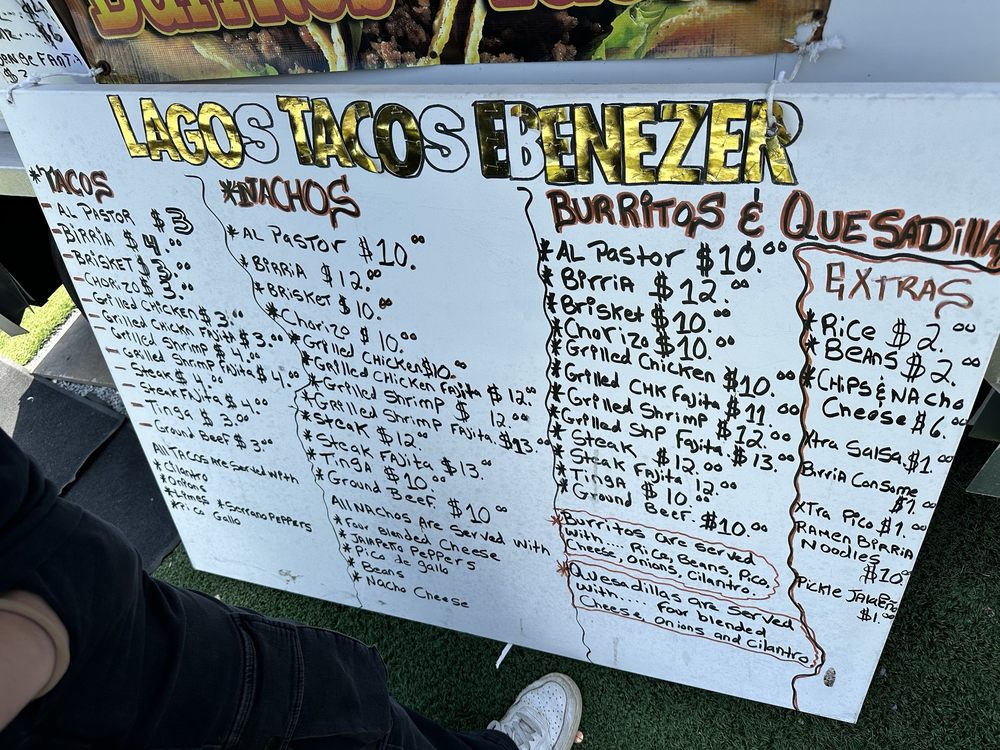 Burritos
$6
$2
LAGOS TACOS EBENEZER
*TACOS
- AL PASTOR $3
- BIRRIA $4.00
- BRISKET $3
- CHORIZO $3.00
- Grilled Chicken $3.00
- Grilled Chickn Fajita $3.00
- Grilled Shrimp $4.00
- Grilled Shrimp Fajita $4.00
- Steak $4.00
- Steak Fajita $4.00
- Tinga $3.00
- Ground Beef $3.00
All Tacos Are Served With
*Cilantro
*Onions
*Limes *Serrano Peppers
*Pico Gallo
*NACHOS
*AL PASTOR $10.00
*BIRRIA $12.00
*BRISKET $10.00
*Chorizo $10.00
*Grilled Chicken $10.00
*Grilled Chicken Fajita $12.00
*Grilled Shrimp $12.00
*Grilled Shrimp Fajita $13.00
*Steak $12.00
*Steak Fajita $13.00
*Tinga $10.00
*Ground Beef. $10.00
All Nachos Are Served With
*Four Blended Cheese
*Jalapeño Peppers
*Pico de gallo
*Beans
*Nacho Cheese
BURRITOS & QUESADILLA
*AL PASTOR $10.00
*Birria $12.00
*Brisket $10.00
*Chorizo $10.00
*Grilled Chicken $10.00
*Grilled CHK Fajita $11.00
*Grilled Shrimp $12.00
*Grilled SHP Fajita. $13.00
*Steak $12.00
*Steak Fajita 12.00
*Tinga $10.00
*Ground Beef. $10.00
*Burritos are served
with.... Rice, Beans, Pico,
Cheese, Onions, Cilantro.
*Quesadillas are served
with.... Four blended
Cheese, Onions and Cilantro.
EXTRAS
*Rice $2.00
*Beans $2.00
*Chips & Nacho
Cheese $6.00
Xtra Salsa $1.00
Birria Consome
$1.00
Xtra Pico $1.00
Ramen Birria
Noodles
$10.00
Pickle Jalapeño
$1.00